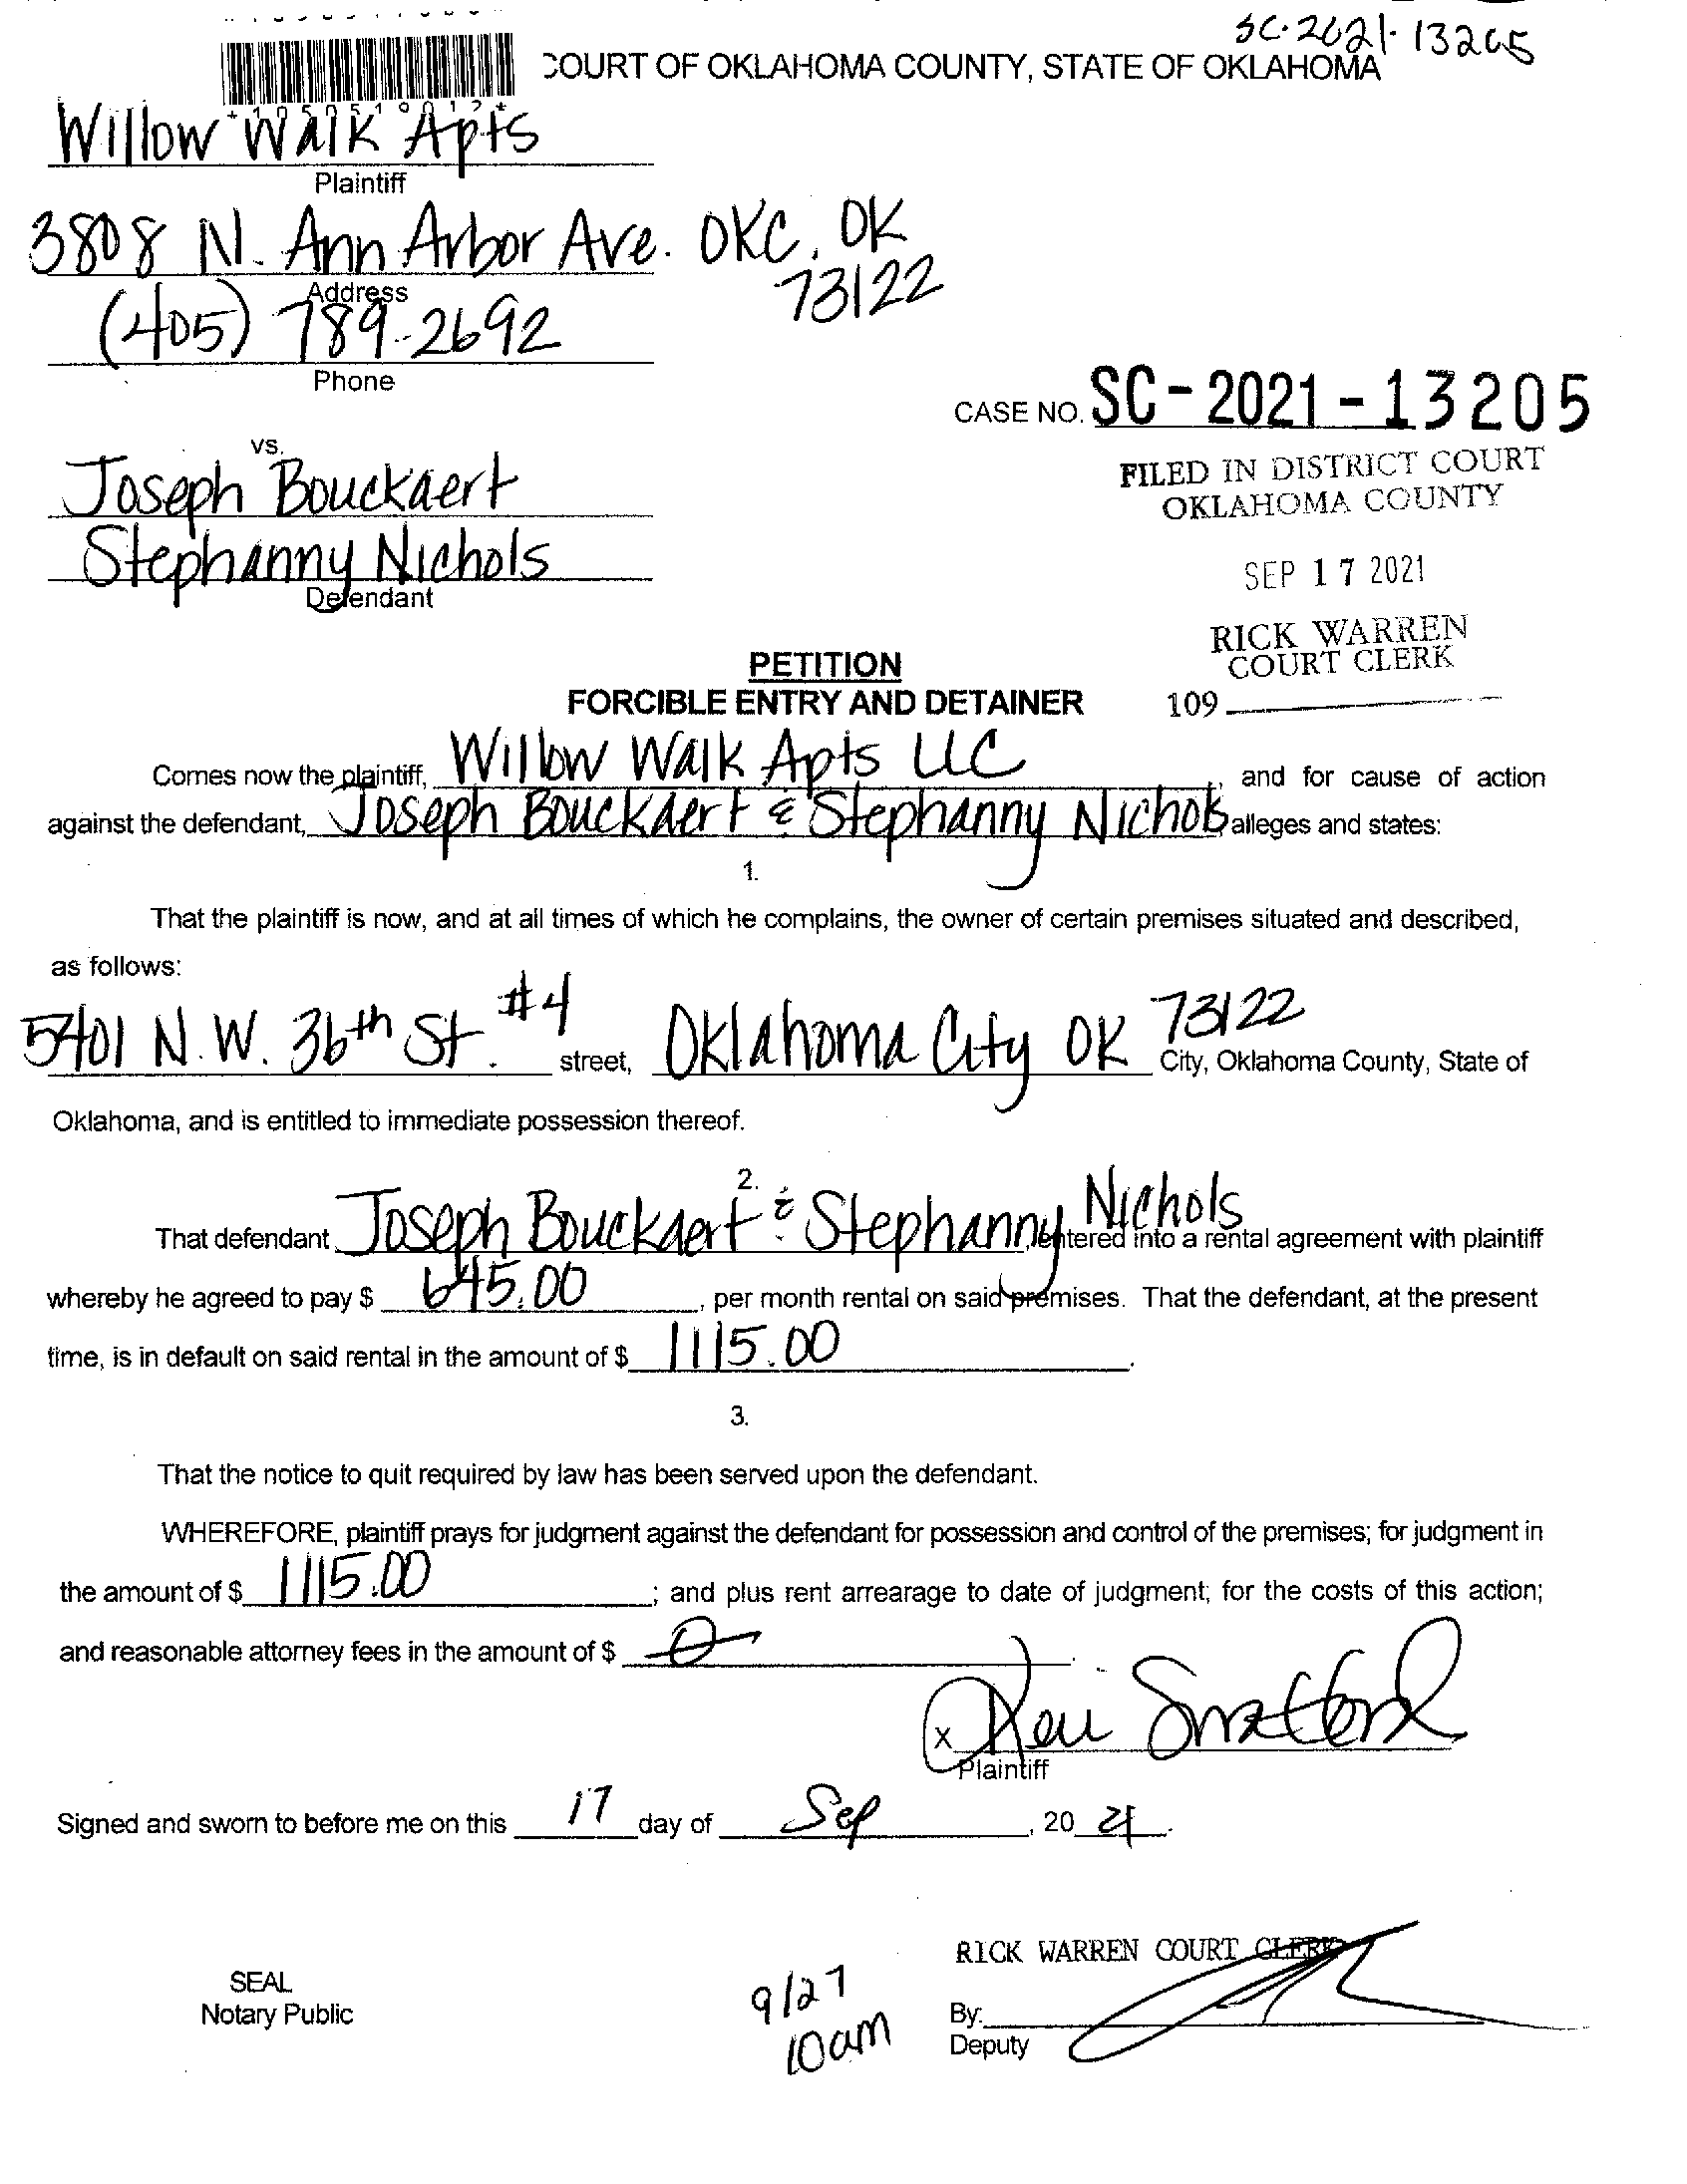 SC-2021-13205
COURT OF OKLAHOMA COUNTY, STATE OF OKLAHOMA
*1050519012*
Willow Walk Apts
Plaintiff
3808 N. Ann Arbor Ave. OKC, OK
73122
Address
(405) 789-2692
Phone
CASE NO. SC-2021-13205
vs.
Joseph Bouckaert
Stephanny Nichols
Defendant
FILED IN DISTRICT COURT
OKLAHOMA COUNTY
SEP 17 2021
RICK WARREN
COURT CLERK
109
PETITION
FORCIBLE ENTRY AND DETAINER
Comes now the plaintiff, Willow Walk Apts LLC, and for cause of action
against the defendant, Joseph Bouckaert & Stephanny Nichols alleges and states:
1.
That the plaintiff is now, and at all times of which he complains, the owner of certain premises situated and described,
as follows:
5401 N.W. 36th St. #4 street, Oklahoma City OK 73122 City, Oklahoma County, State of
Oklahoma, and is entitled to immediate possession thereof.
2.
That defendant Joseph Bouckaert & Stephanny Nichols, entered into a rental agreement with plaintiff
whereby he agreed to pay $ 645.00, per month rental on said premises. That the defendant, at the present
time, is in default on said rental in the amount of $ 1115.00.
3.
That the notice to quit required by law has been served upon the defendant.
WHEREFORE, plaintiff prays for judgment against the defendant for possession and control of the premises; for judgment in
the amount of $ 1115.00; and plus rent arrearage to date of judgment; for the costs of this action;
and reasonable attorney fees in the amount of $ 0.
x
Plaintiff
Signed and sworn to before me on this 17 day of Sep, 20 21.
RICK WARREN COURT CLERK
SEAL
Notary Public
9/27
10am
By:
Deputy